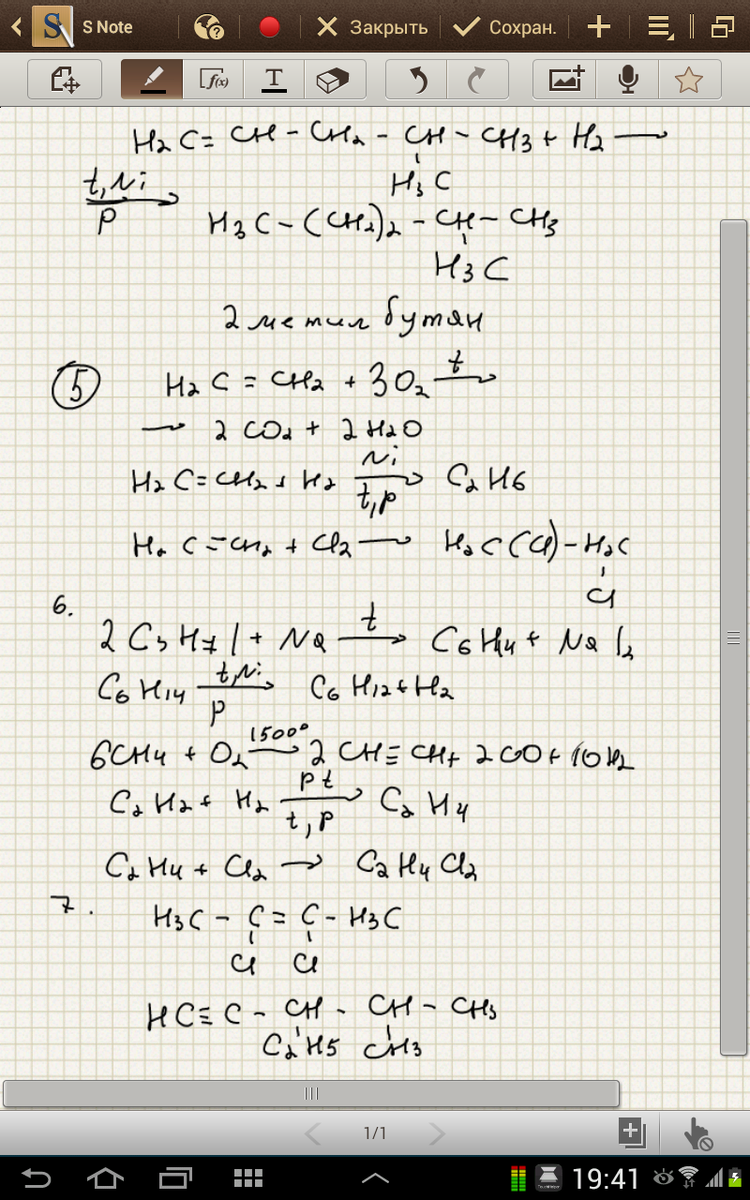 S Note Закрыть Сохран.
f(x) T
H₂C = CH - CH₂ - CH - CH₃ + H₂ ⟶
H₃C
t, Ni
p
H₃C - (CH₂)₂ - CH - CH₃
H₃C
2 метил бутан
5 H₂C = CH₂ + 3O₂ t ⟶
⟶ 2 CO₂ + 2 H₂O
H₂C = CH₂ + H₂ Ni ⟶ t, p C₂H₆
H₂C = CH₂ + Cl₂ ⟶ H₂C(Cl) - H₂C
Cl
6.
2 C₃H₇I + Na t ⟶ C₆H₁₄ + Na I₂
C₆H₁₄ t, Ni ⟶ p C₆H₁₂ + H₂
6CH₄ + O₂ 1500° ⟶ 2 CH ≡ CH + 2CO + 10H₂
C₂H₂ + H₂ pt ⟶ t, p C₂H₄
C₂H₄ + Cl₂ ⟶ C₂H₄Cl₂
7.
H₃C - C = C - H₃C
Cl Cl
HC ≡ C - CH - CH - CH₃
C₂H5 CH3
1/1
19:41